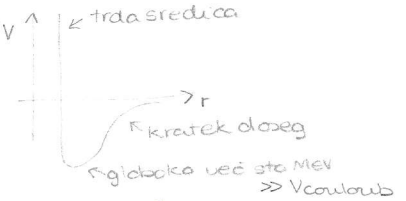 trda sredica
V
r
kratek doseg
globoko več sto MeV
>> Vcoulomb